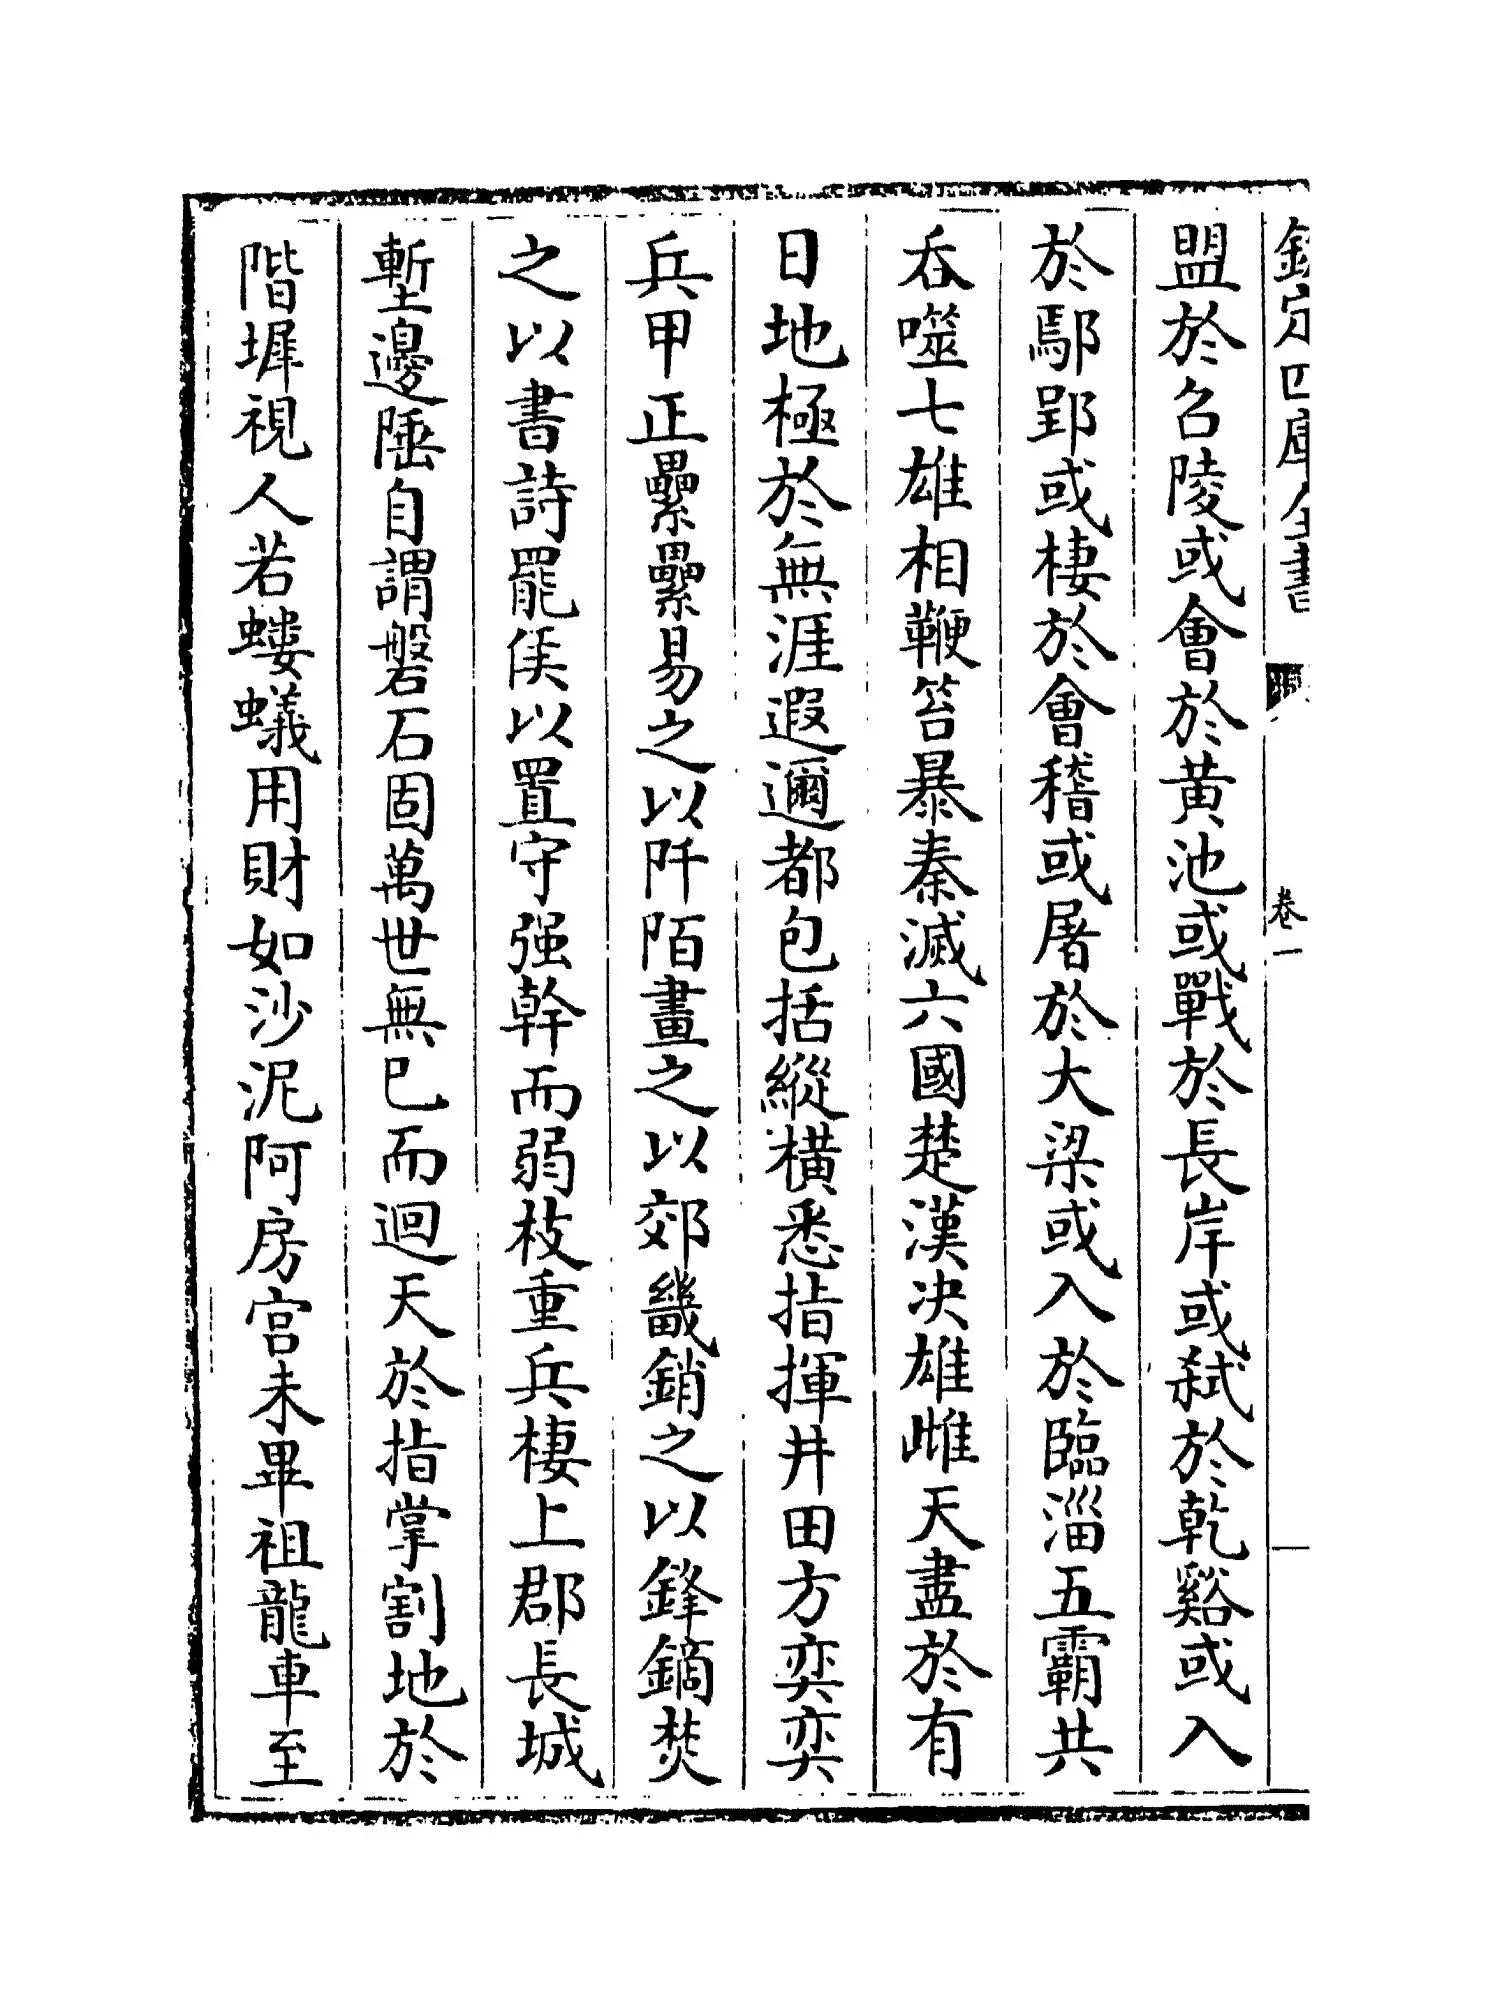 欽定四庫全書
卷一
盟於召陵或會於黄池或戰於長岸或弑於乾谿或入
於鄢郢或棲於會稽或屠於大梁或入於臨淄五霸共
吞噬七雄相鞭笞暴秦滅六國楚漢决雄雌天盡於有
日地極於無涯遐邇都包括縱横悉指揮井田方奕奕
兵甲正纍纍易之以阡陌畫之以郊畿銷之以鋒鏑焚
之以書詩罷侯以置守强幹而弱枝重兵棲上郡長城
塹邊陲自謂磐石固萬世無已而迴天於指掌割地於
階墀視人若螻蟻用財如沙泥阿房宫未畢祖龍車至